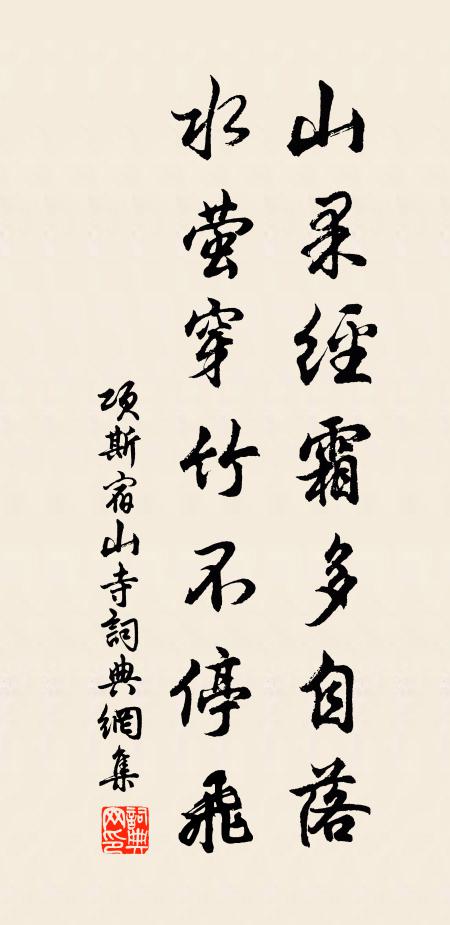 山果經霜多自落
水螢穿竹不停飛
項斯宿山寺詞典網集
詞典網印